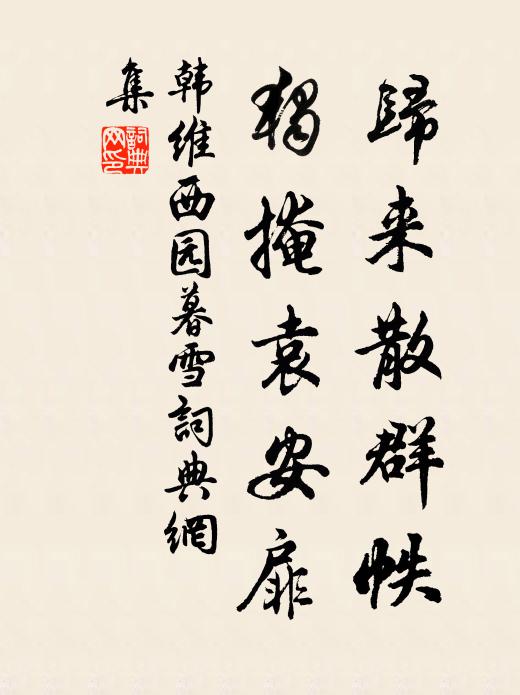 歸来散群帙
獨掩袁安扉
韩维西园暮雪詞典網
集
詞典網印